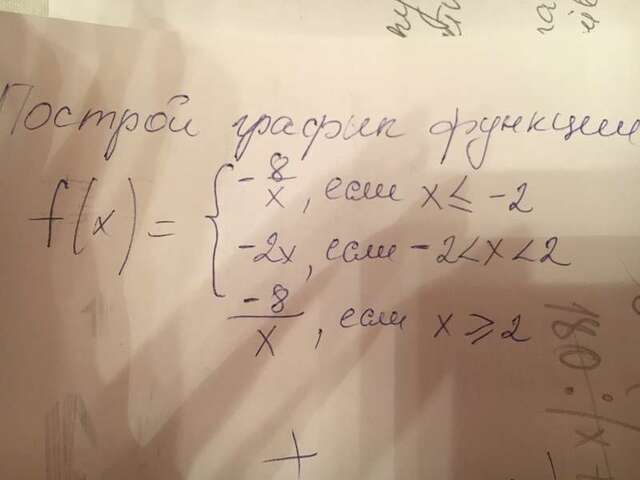 Построй график функции
f(x) = { -8/x, если x ≤ -2
-2x, если -2<x<2
-8/x, если x ⩾ 2
180:(x+